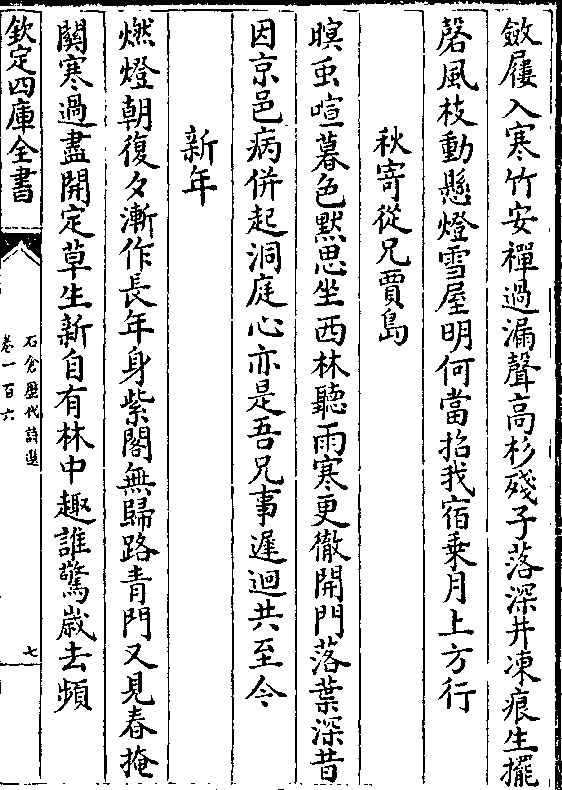 斂屨入寒竹安禪過漏聲高杉殘子落深井凍痕生擺
磬風枝動懸燈雪屋明何當招我宿乗月上方行
秋寄從兄賈島
暝䖝喧暮色黙思坐西林聽雨寒更徹開門落葉深昔
因京邑病併起洞庭心亦是吾兄事遲迴共至今
新年
燃燈朝復夕漸作長年身紫閣無歸路青門又見春掩
關寒過盡開定草生新自有林中趣誰驚嵗去頻
欽定四庫全書
石倉歴代詩選
卷一百六
七